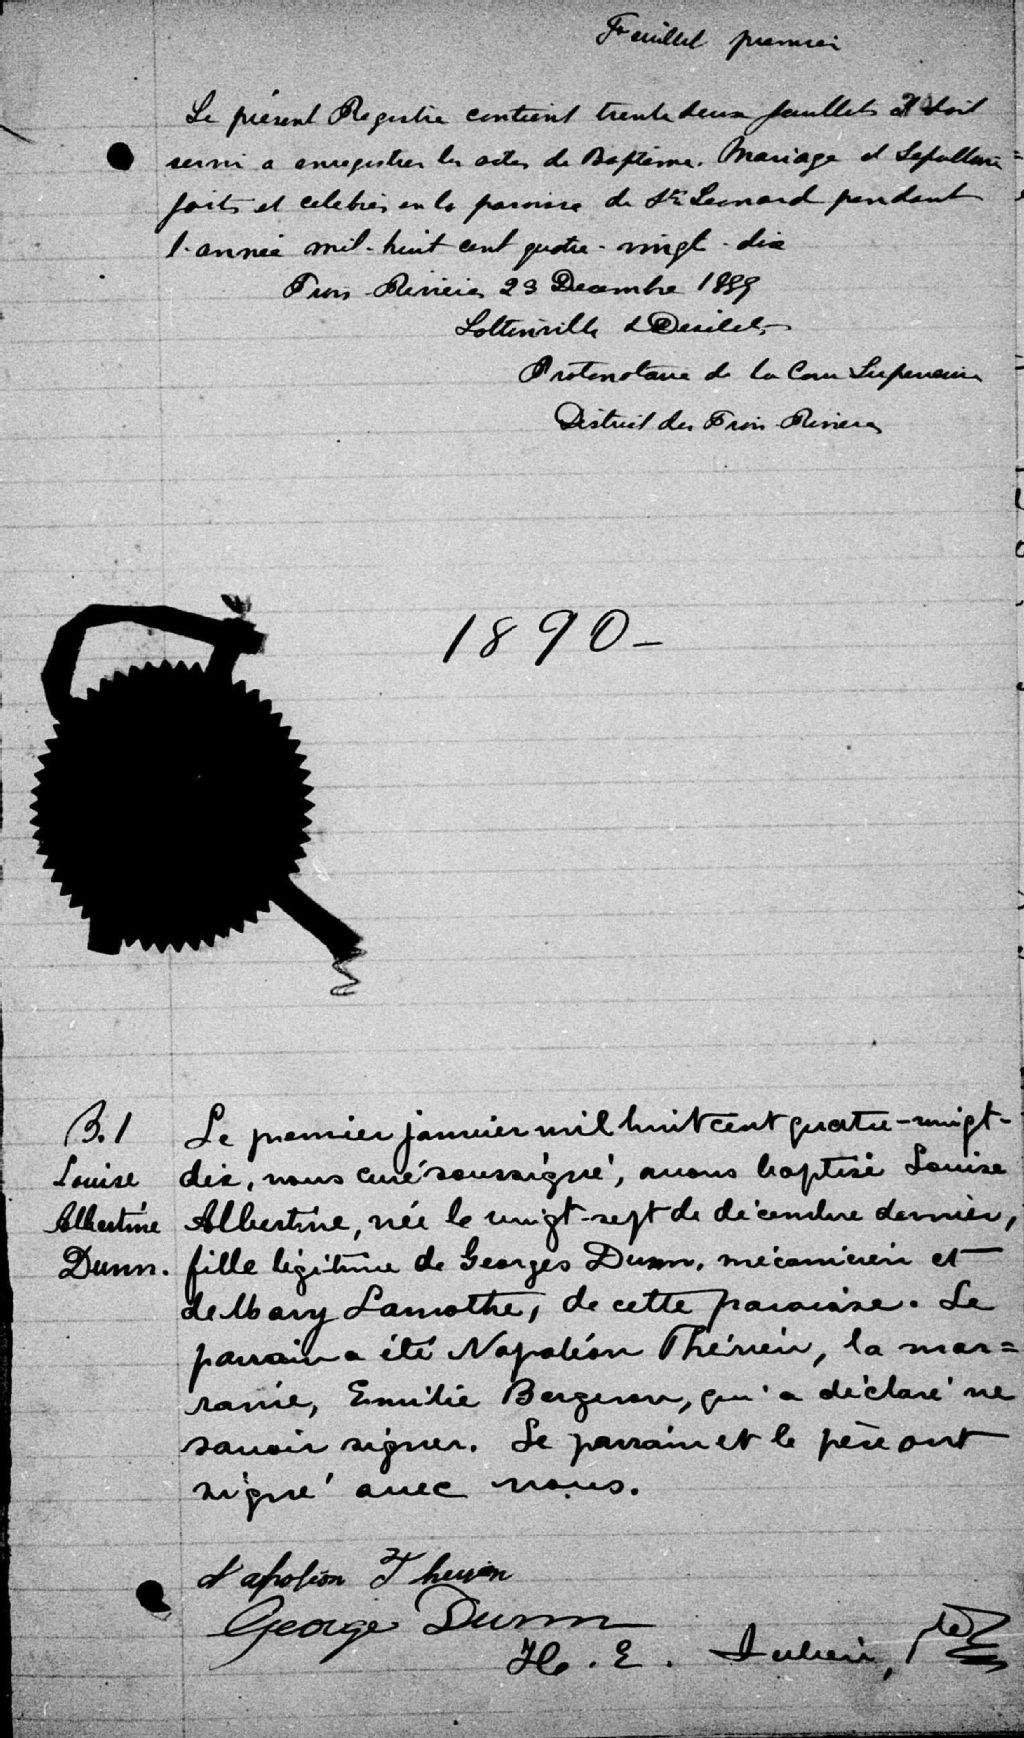 Feuillet premier
Le présent Registre contient trente deux feuillets et doit
servir a enregistrer les actes de Baptême. Mariage et Sepulture
faits et celebrés en la paroisse de St. Leonard pendant
l'année mil-huit cent quatre-vingt-dix
Trois-Rivières 23 Decembre 1889
Lottinville & Desilets
Protonotaire de la Cour Superieure
District des Trois-Rivieres
1890-
B.1
Louise
Albertine
Dunn.
Le premier janvier mil huit cent quatre-vingt-
dix, nous curé soussigné, avons baptisé Louise
Albertine, née le vingt-sept de décembre dernier,
fille légitime de Georges Dunn, mécanicien et
de Mary Lamothe, de cette paroisse. Le
parrain a été Napoléon Thérrien, la mar=
raine, Emilie Bergeron, qui a déclaré ne
savoir signer. Le parrain et le père ont
signé avec nous.
Napoléon Therrien
George Dunn
H. E. Julien, Ptre